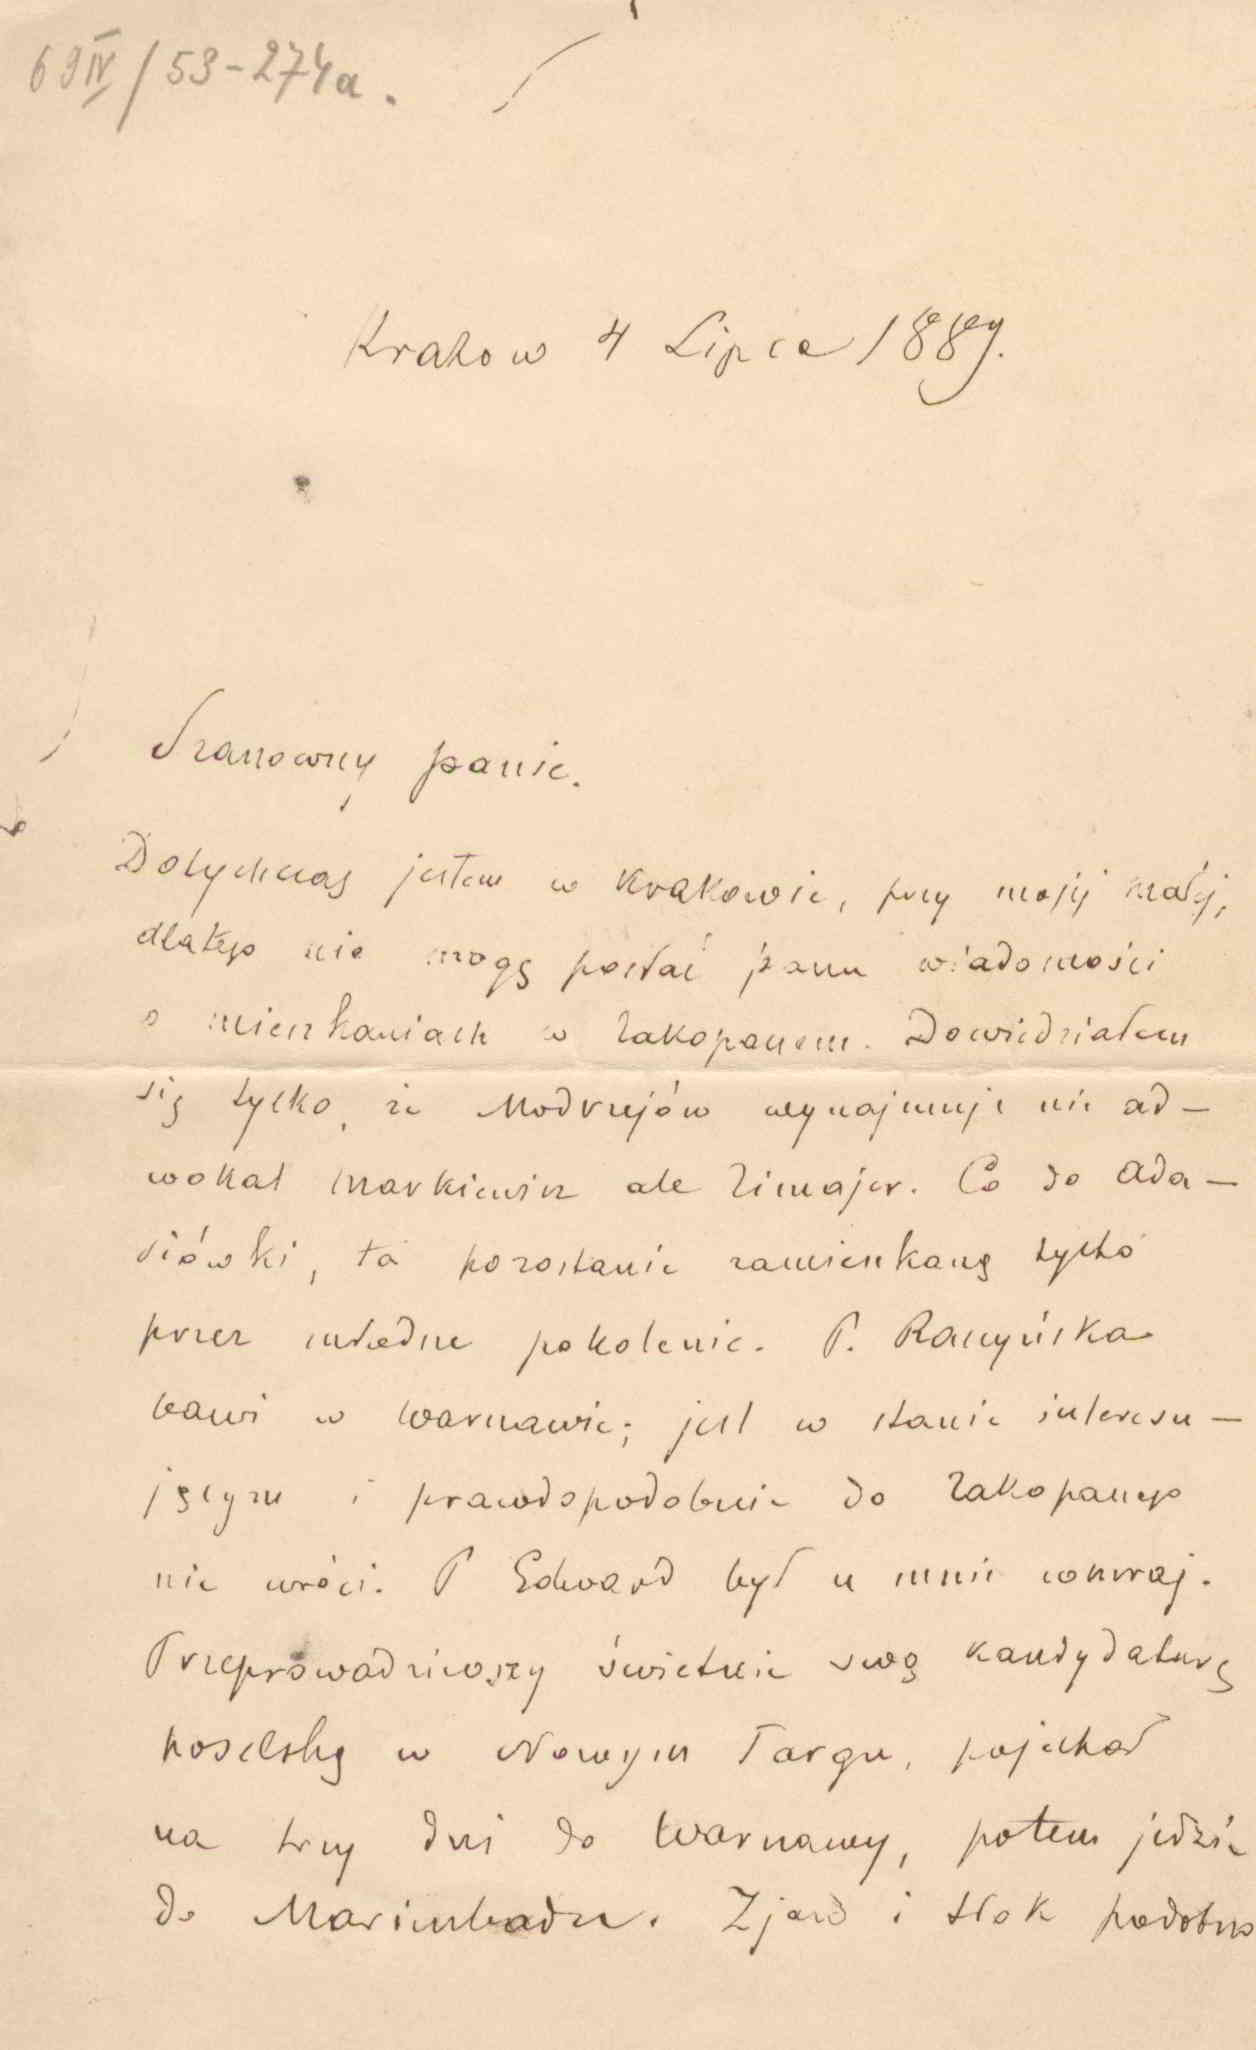 69 IV/53-274a.
Krakow 4 Lipca 1889.
Szanowny panie.
Dotychczas jestem w Krakowie, przy mojej małej,
dlatego nie mogę posłać panu wiadomości
o mieszkaniach w Zakopanem. Dowiedziałem
się tylko, że Modrzejów wynajmuje nie ad-
wokat Markiewicz ale Zimajer. Co do Ada-
siówki, ta pozostanie zamieszkaną tylko
przez młodsze pokolenie. P. Raczyńska
bawi w Warszawie; jest w stanie interesu-
jącym i prawdopodobnie do Zakopanego
nie wróci. P Edward był u mnie wczoraj.
Przeprowadziwszy świetnie swą kandydaturę
poselską w Nowym Targu, pojechał
na trzy dni do Warszawy, potem jedzie
do Marienbadu. Zjazd i tłok podobno